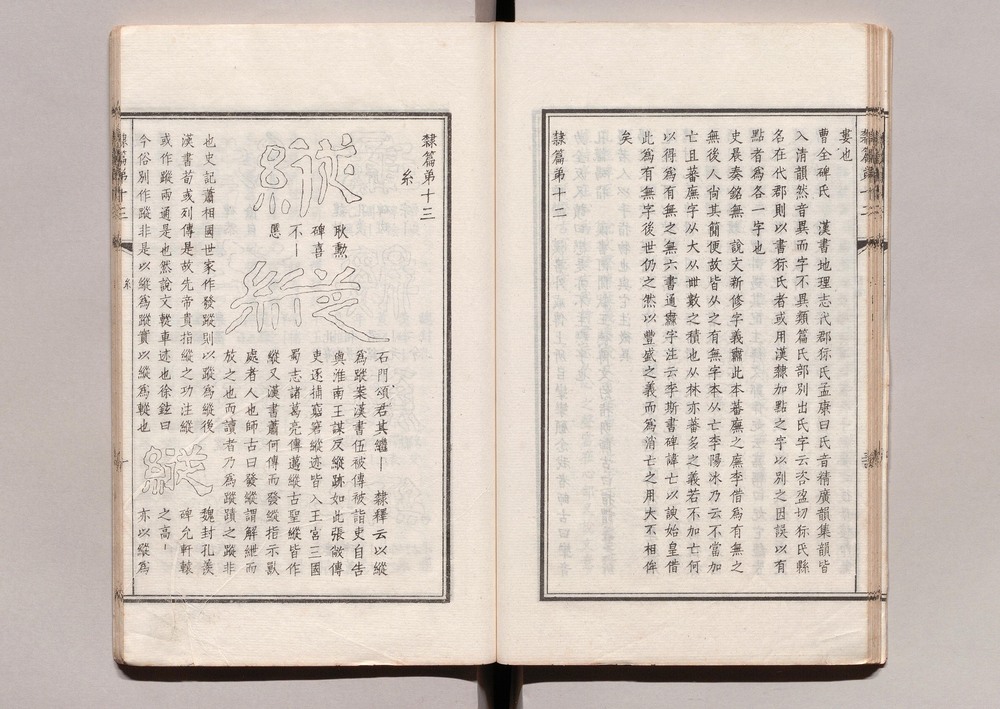 婁也
曹全碑氏　漢書地理志代郡狋氏孟康曰氏音精廣韻集韻皆
入清韻然音異而字不異類篇氏部別出氏字云咨盈切狋氏縣
名在代郡則以書狋氏者或用漢隸加點之字以別之因誤以有
點者為各一字也
史晨奏銘無　說文新修字義𣞤此本蕃廡之廡李借為有無之
無後人尚其簡便故皆从之有無字本从亡李陽冰乃云不當加
亡且蕃廡字从大从卌數之積也从林亦蕃多之義若不加亡何
以得為有無之無六書通𣞤字注云李斯書碑諱亡以諛始皇借
此為有無字後世仍之然以豐盛之義而為消亡之用大不相侔
矣
隸篇弟十二
隸篇弟十三
糸
縱
耿勳
碑喜
不｜
慝
縱
石門頌君其繼｜　隸釋云以縱
為蹤案漢書伍被傳被詣吏自告
與淮南王謀反縱跡如此張敞傳
吏逐捕竆窘縱迹皆入王宮三國
蜀志諸葛亮傳邁縱古聖縱皆作
縱又漢書蕭何傳而發縱指示獸
處者人也師古曰發縱謂解紲而
放之也而讀者乃為蹤蹟之蹤非
也史記蕭相國世家作發蹤則以蹤為縱後
漢書荀彧列傳是故先帝貴指縱之功注縱
或作蹤兩通是也然說文䡮車迹也徐鉉曰
今俗別作蹤非是以縱為蹤實以縱為䡮也
縱
魏封孔羨
碑允軒轅
之高｜
亦以縱為
隸篇弟十三
糸